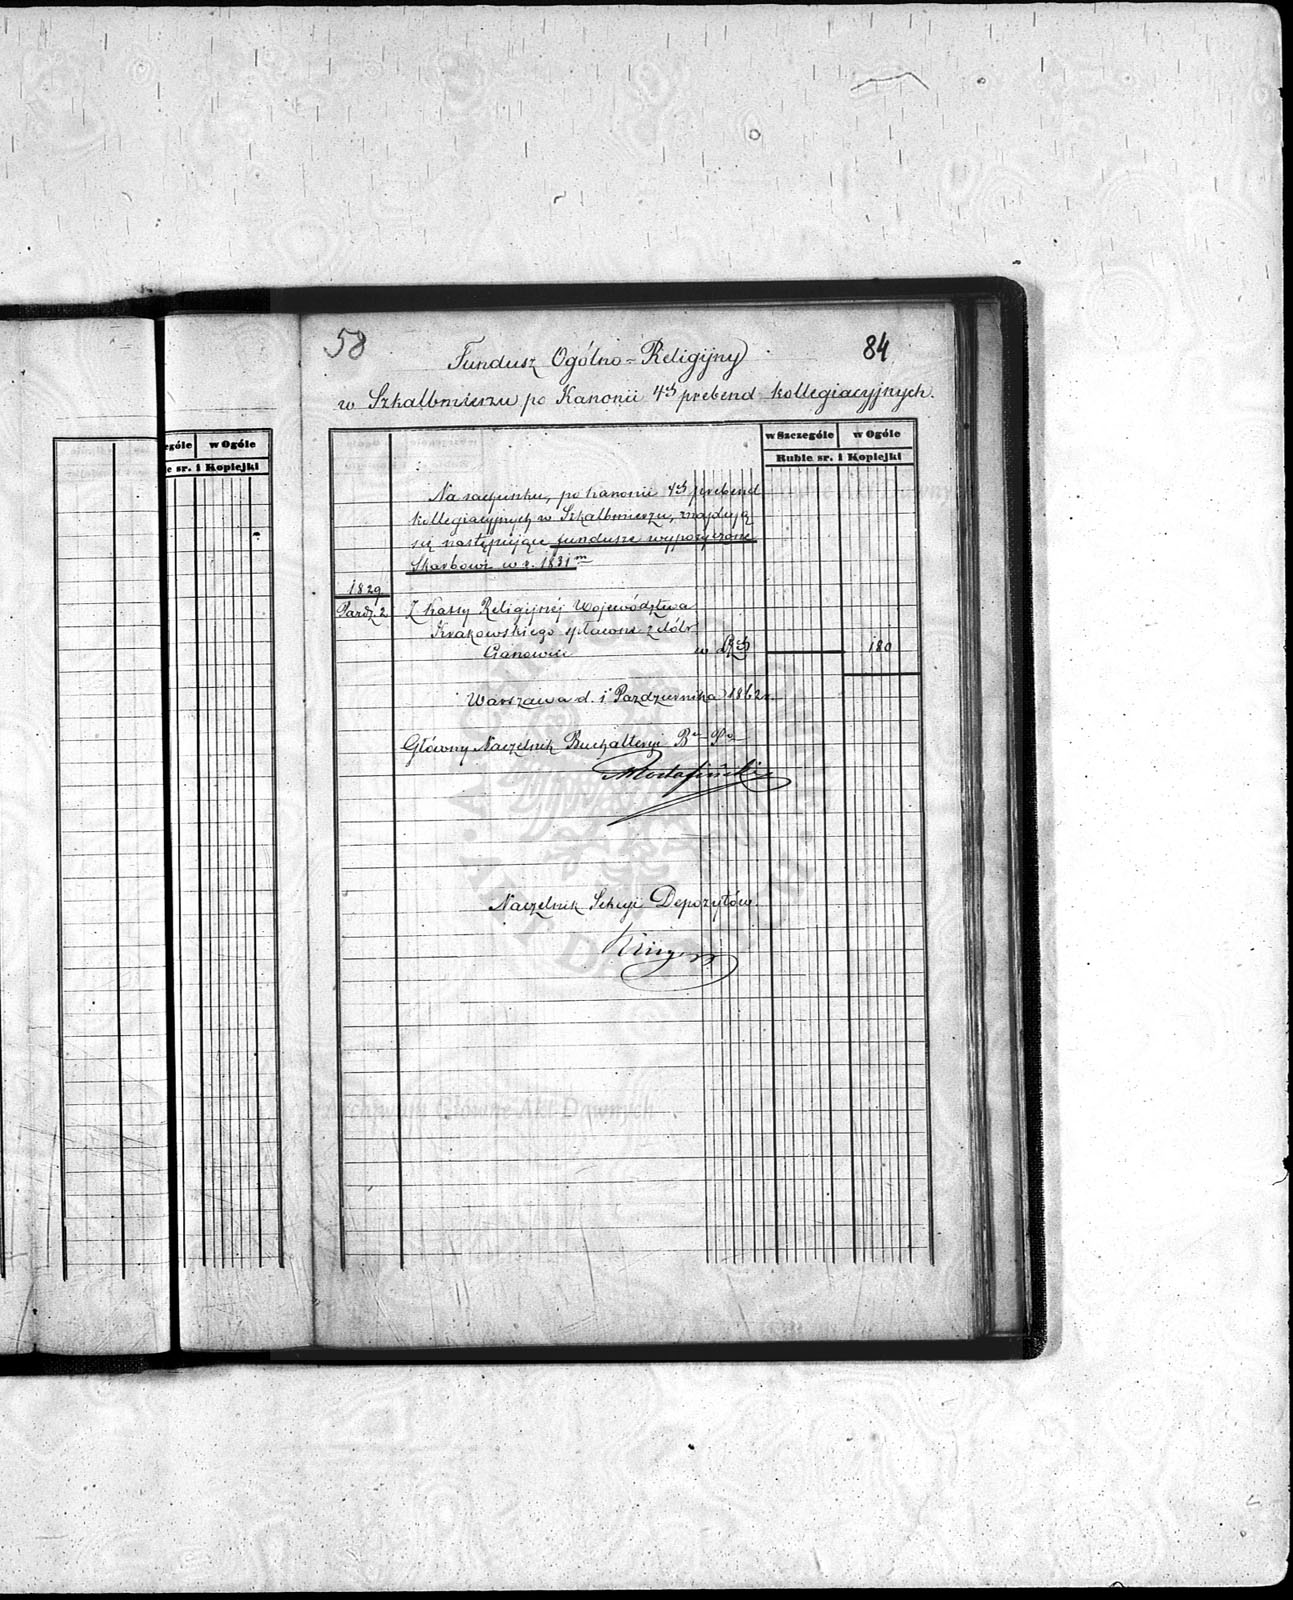 58
84
Fundusz Ogólno-Religijny
w Szkalbmierzu po Kanonii 4ch prebend kollegiacyjnych.
w Szczególe w Ogóle
Ruble sr. i Kopiejki
w Ogóle
sr. i Kopiejki
Na rachunku, po Kanonii 4ch prebend
kollegiacyjnych w Szkalbmierzu, znajdują
się następujące fundusze wypożyczone
Skarbowi w r. 1831m
1829
Paźdz. 2 Z kassy Religijnéj Województwa
Krakowskiego spłacone z dóbr
w 180
Warszawa d. 1 Października 1862 r.
Główny Naczelnik Buchalteryi
Naczelnik Sekcyi Depozytów.
Archiwum Główne Akt Dawnych